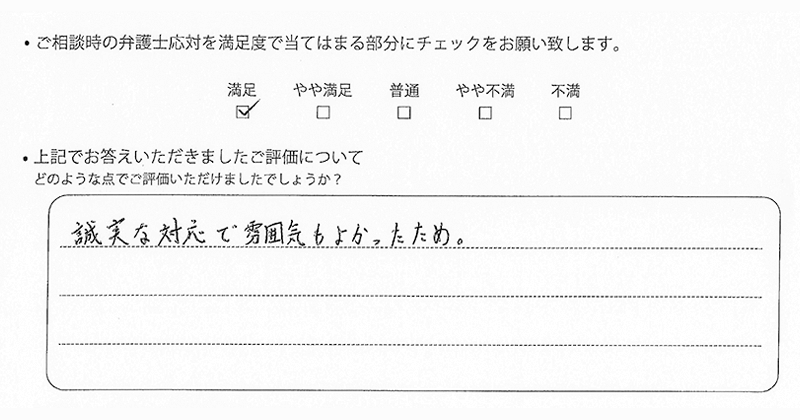 ・ご相談時の弁護士応対を満足度で当てはまる部分にチェックをお願い致します。
満足 やや満足 普通 やや不満 不満
☑ □ □ □ □
・上記でお答えいただきましたご評価について
どのような点でご評価いただけましたでしょうか？
誠実な対応で雰囲気もよかったため。